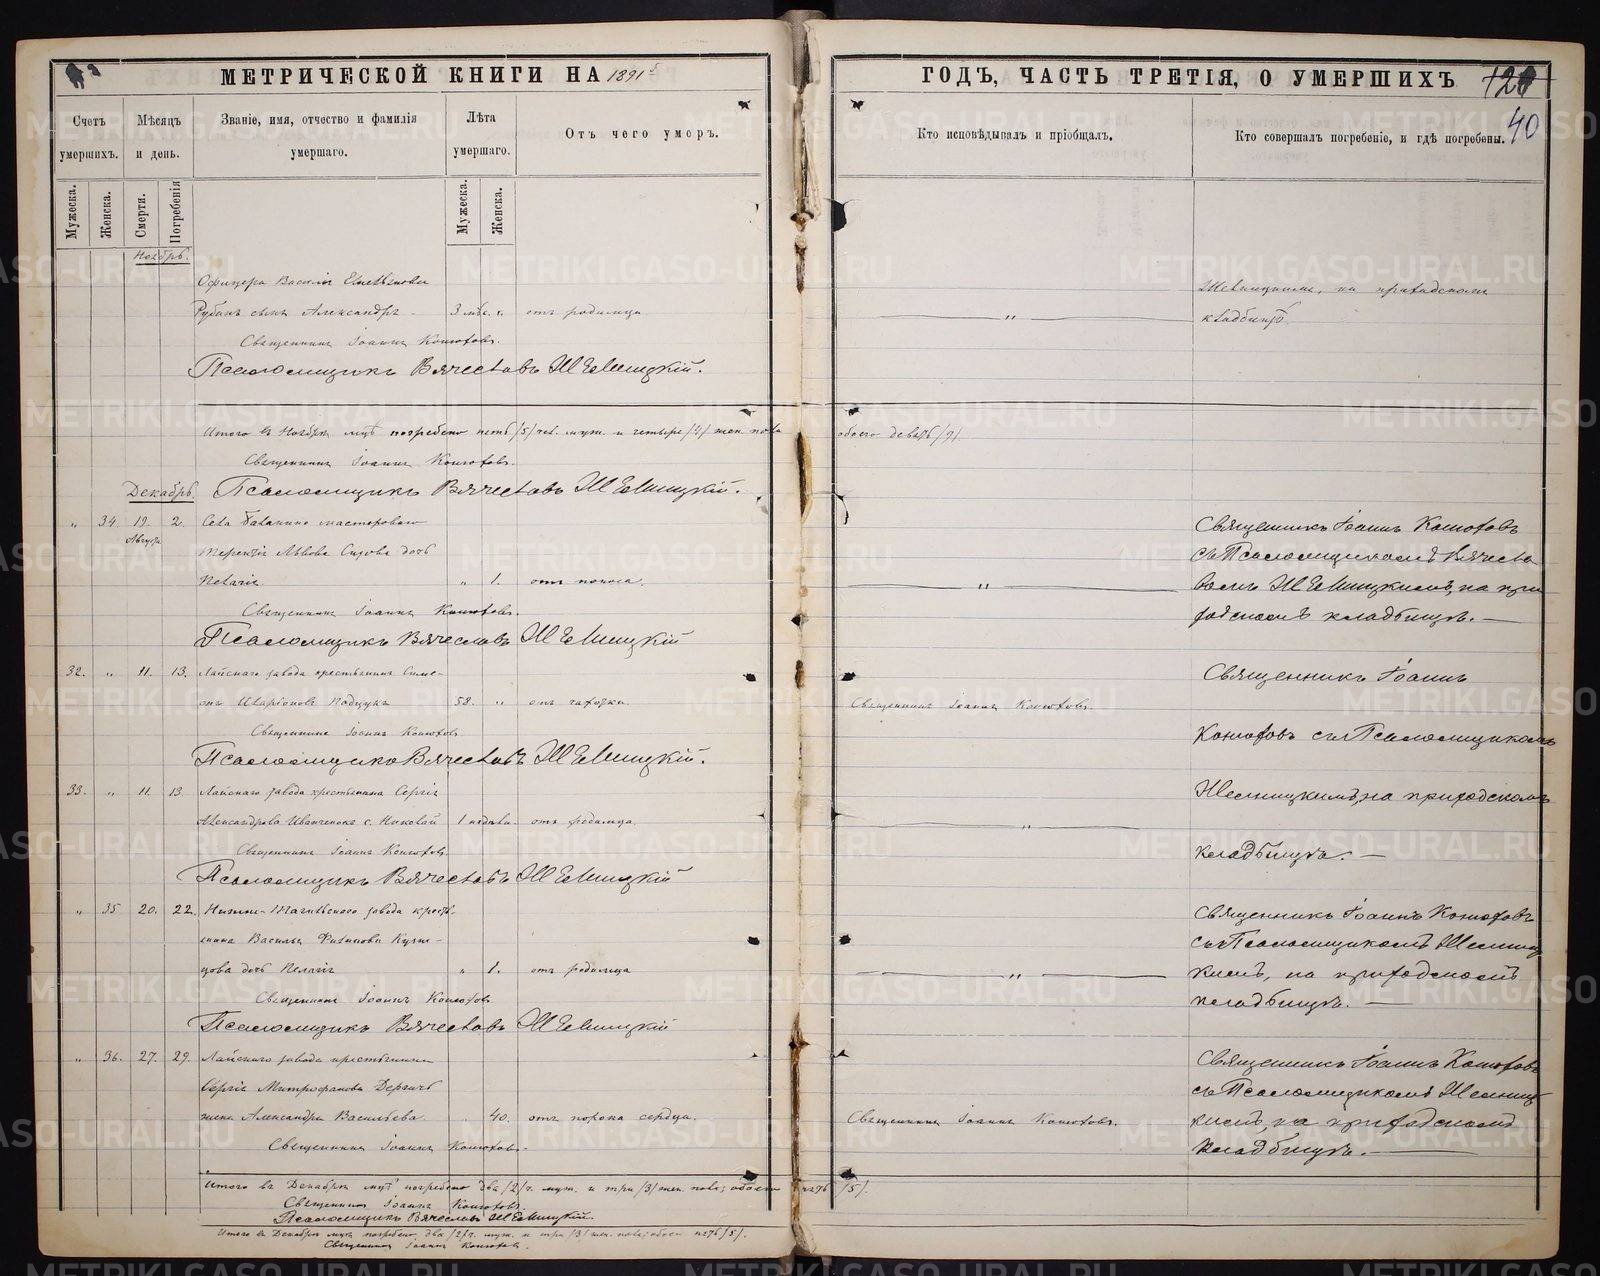 МЕТРИЧЕСКОЙ КНИГИ НА 1891
Счетъ умершихъ.
Мѣсяцъ и день.
Званіе, имя, отчество и фамилія умершаго.
Лѣта умершаго.
Отъ чего умеръ.
Мужеска.
Женска.
Смерти.
Погребенія
Мужеска.
Женска.
Ноябрь.
Офицера Василія
Рубанъ сынъ Александръ 3 мѣс. „ отъ родимца
Священникъ Іоаннъ Конюховъ.
Псаломщикъ Вячеславъ Шелницкій.
Итого въ Ноябрѣ погребено пять /5/ чел. муж. и четыре /4/ жен. пола
Священникъ Іоаннъ Конюховъ.
Декабрь
Псаломщикъ Вячеславъ Шелницкій.
„ 34. 19. 2. Села мастероваго
Августа
Терентія Львова дочь
Пелагія „ 1. отъ поноса.
Священникъ Іоаннъ Конюховъ.
Псаломщикъ Вячеславъ Шелницкій
32. „ 11. 13. Лайскаго завода крестьянинъ Симе-
онъ 58. „ отъ чахотки.
Священникъ Іоаннъ Конюховъ
Псаломщикъ Вячеславъ Шелницкій.
33. „ 11. 13. Лайскаго завода крестьянина Сергія
Александрова Иванченко с. Николай 1 недѣли. отъ родимца.
Священникъ Іоаннъ Конюховъ.
Псаломщикъ Вячеславъ Шелницкій
„ 35 20. 22. Нижне-Тагильскаго завода кресть-
янина Василья Филипова Кузне-
цова дочь Пелагія „ 1. отъ родимца
Священникъ Іоаннъ Конюховъ
Псаломщикъ Вячеславъ Шелницкій
„ 36. 27. 29. Лайскаго завода крестьянина
Сергія Митрофанова
жена Александра Васильева. „ 40. отъ порока сердца.
Священникъ Іоаннъ Конюховъ.
Итого въ Декабрѣ погребено два /2/ ч. муж. и три /3/ жен. пола; обоего
Священникъ Іоаннъ Конюховъ.
Псаломщикъ Вячеславъ Шелницкій.
Итого въ Декабрѣ погребено два /2/ ч. муж. и три /3/ жен. пола; обоего пять /5/.
Священникъ Іоаннъ Конюховъ.
ГОДЪ, ЧАСТЬ ТРЕТІЯ, О УМЕРШИХЪ
40
Кто исповѣдывалъ и пріобщалъ.
Кто совершалъ погребеніе, и гдѣ погребены.
Шелницкимъ, на приходскомъ
кладбищѣ.
обоего девять /9/.
Священникъ Іоаннъ Конюховъ
съ Псаломщикомъ Вячесла
вомъ Шелницкимъ, на при
ходскомъ кладбищѣ.
Священникъ Іоаннъ
Священникъ Іоаннъ Конюховъ.
Конюховъ съ Псаломщикомъ
Шелницкимъ, на приходскомъ
кладбищѣ.
Священникъ Іоаннъ Конюховъ
съ Псаломщикомъ Шелниц
кимъ, на приходскомъ
кладбищѣ.
Священникъ Іоаннъ Конюховъ
съ Псаломщикомъ Шелниц
Священникъ Іоаннъ Конюховъ.
кимъ, на приходскомъ
кладбищѣ.
пять /5/.
METRIKI.GASO-URAL.RU